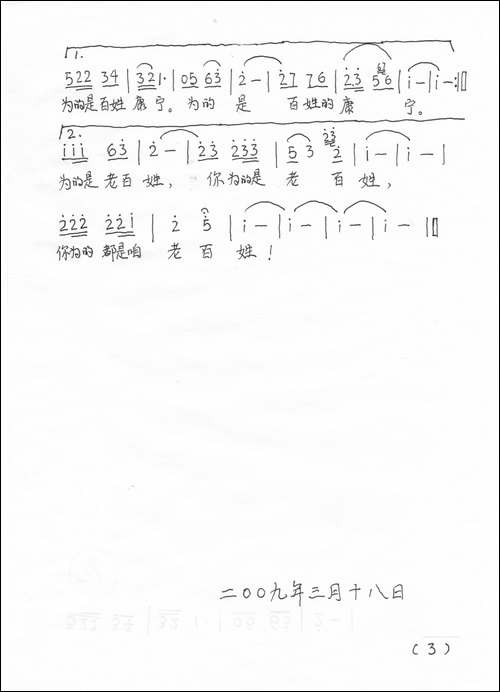 1.
522 34 | 321· | 05 63 | 2 — | 27 76 | 23 56 | i — | i — :||
为的是百姓康宁。为的 是 百姓的康 宁。
2.
iii 63 | 2 — | 23 233 | 5 3 2 | i — | i — |
为的是老百姓, 你为的是 老 百 姓,
222 22i | 2 5 | i — | i — | i — | i — ||
你为的 都是咱 老 百 姓!
二00九年三月十八日
(3)